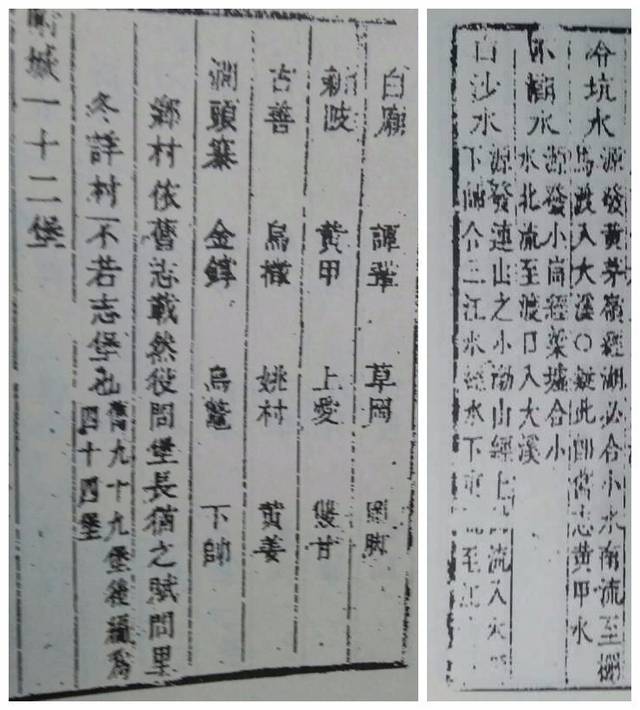 白廟 譚鞏 草岡
新陂 黃甲 上愛 雙甘
古善 烏撒 姚村 黃姜
澗頭寨 金鐸 烏鼇 下帥
鄉村依舊志載然役問堡長猶之賦問里
冬詳村不若志堡也
舊九十九堡後編爲
四十四堡
城一十二堡
谷坑水
源發黃茅嶺經湖必合小水南流至
馬渡入大溪〇疑此卽舊志黃甲水
水
源發小崗經梁墟合小
水北流至渡口入大溪
白沙水
源發連山之小山經上流入大
下帥合三江水經水下東至江